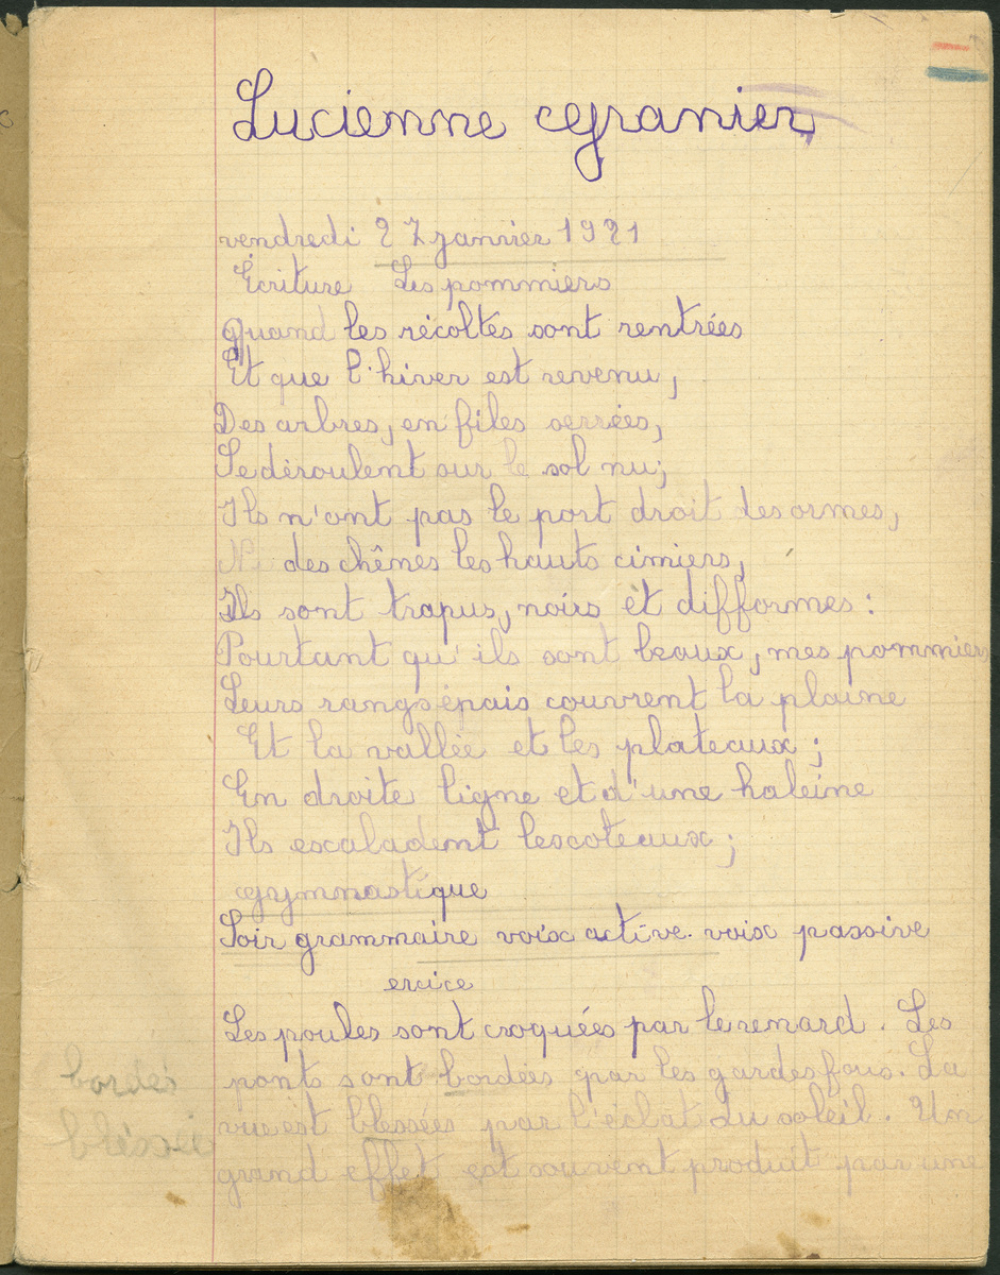 Lucienne Granier
vendredi 27 janvier 1921
Ecriture Les pommiers
Quand les récoltes sont rentrées
Et que l'hiver est revenu,
Des arbres, en files serrées,
Se déroulent sur le sol nu;
Ils n'ont pas le port droit des ormes,
Ni des chênes les hauts cimiers,
Ils sont trapus, noirs et difformes :
Pourtant qu'ils sont beaux, mes pommiers
Leurs rangs épais couvrent la plaine
Et la vallée et les plateaux ;
En droite ligne et d'une haleine
Ils escaladent les coteaux ;
Gymnastique
Soir grammaire voix active. voix passive
ercice
Les poules sont croquées par le renard. Les
ponts sont bordées par les gardes fous. La
vue est blessées par l'éclat du soleil. Un
grand effet est souvent produit par une
bordés
blessée